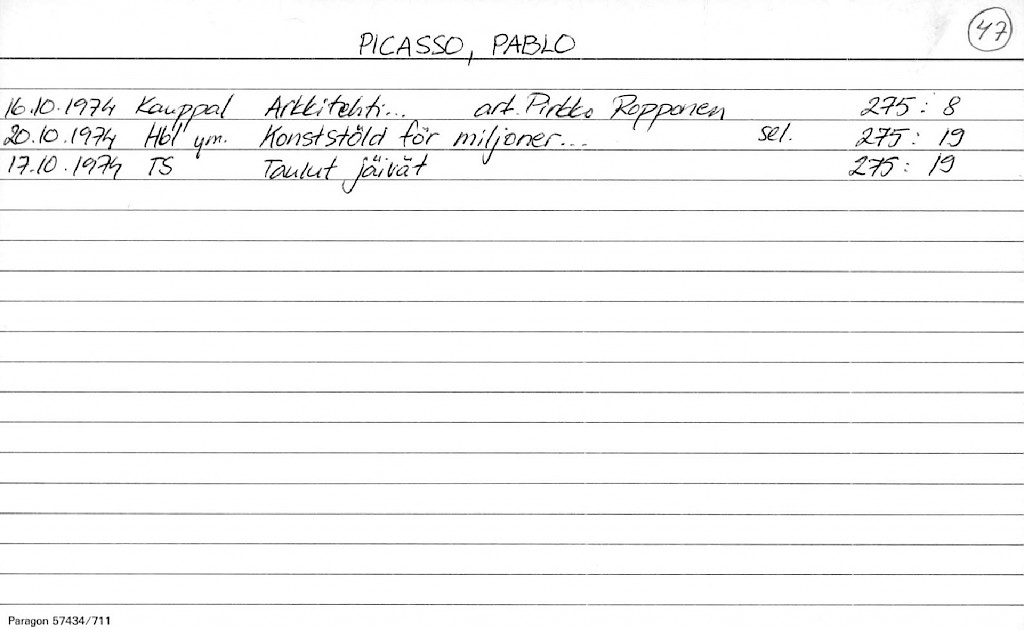 47
PICASSO, PABLO
16.10.1974 Kauppal Arkkitehti... art. Pirkko Ropponen 275: 8
20.10.1974 Hbl ym. Konststöld för miljoner... sel. 275: 19
17.10.1974 TS Taulut jäivät 275: 19
Paragon 57434/711